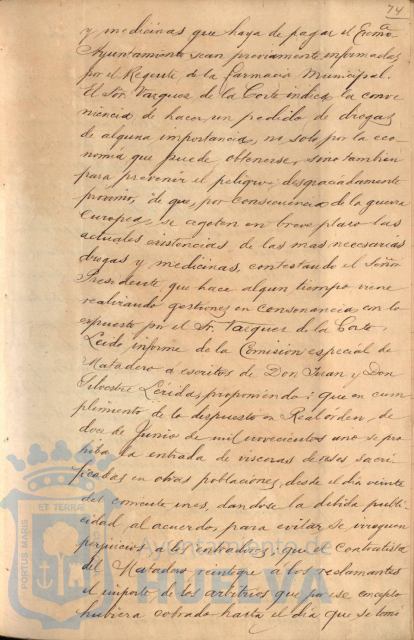 74
y medicinas que haya de pagar el Excmo.
Ayuntamiento sean previamente informadas
por el Regente de la farmacia Municipal.
El Sr. Vazquez de la Corte indica la conve
niencia de hacer un pedido de drogas
de alguna importancia, no solo por la eco
nomía que puede obtenerse, sino tambien
para prevenir el peligro, desgraciadamente
proximo, de que, por consecuencia de la guerra
Europea, se agoten en breve plazo las
actuales existencias de las mas necesarias
drogas y medicinas, contestando el Señor
Presidente que hace algun tiempo viene
realizando gestiones en consonancia con lo
expuesto por el Sr. Vazquez de la Corte.
Leido informe de la Comision especial de
Matadero a escritos de Don Juan y Don
Silvestre Léridas, proponiendo: que en cum
plimiento de lo dispuesto en Real orden de
doce de Junio de mil novecientos uno se pro
hiba la entrada de visceras de reses sacri
ficadas en otras poblaciones, desde el dia veinte
del corriente mes, dandose la debida publi
cidad al acuerdo, para evitar se irroguen
perjuicios a los entradores; que el Contratista
del Matadero reintegre a los reclamantes
el importe de los arbitrios que por ese concepto
hubiera cobrado hasta el dia que se tomó
PORTUS MARIS ET TERRAE
Ayuntamiento de
HUELVA